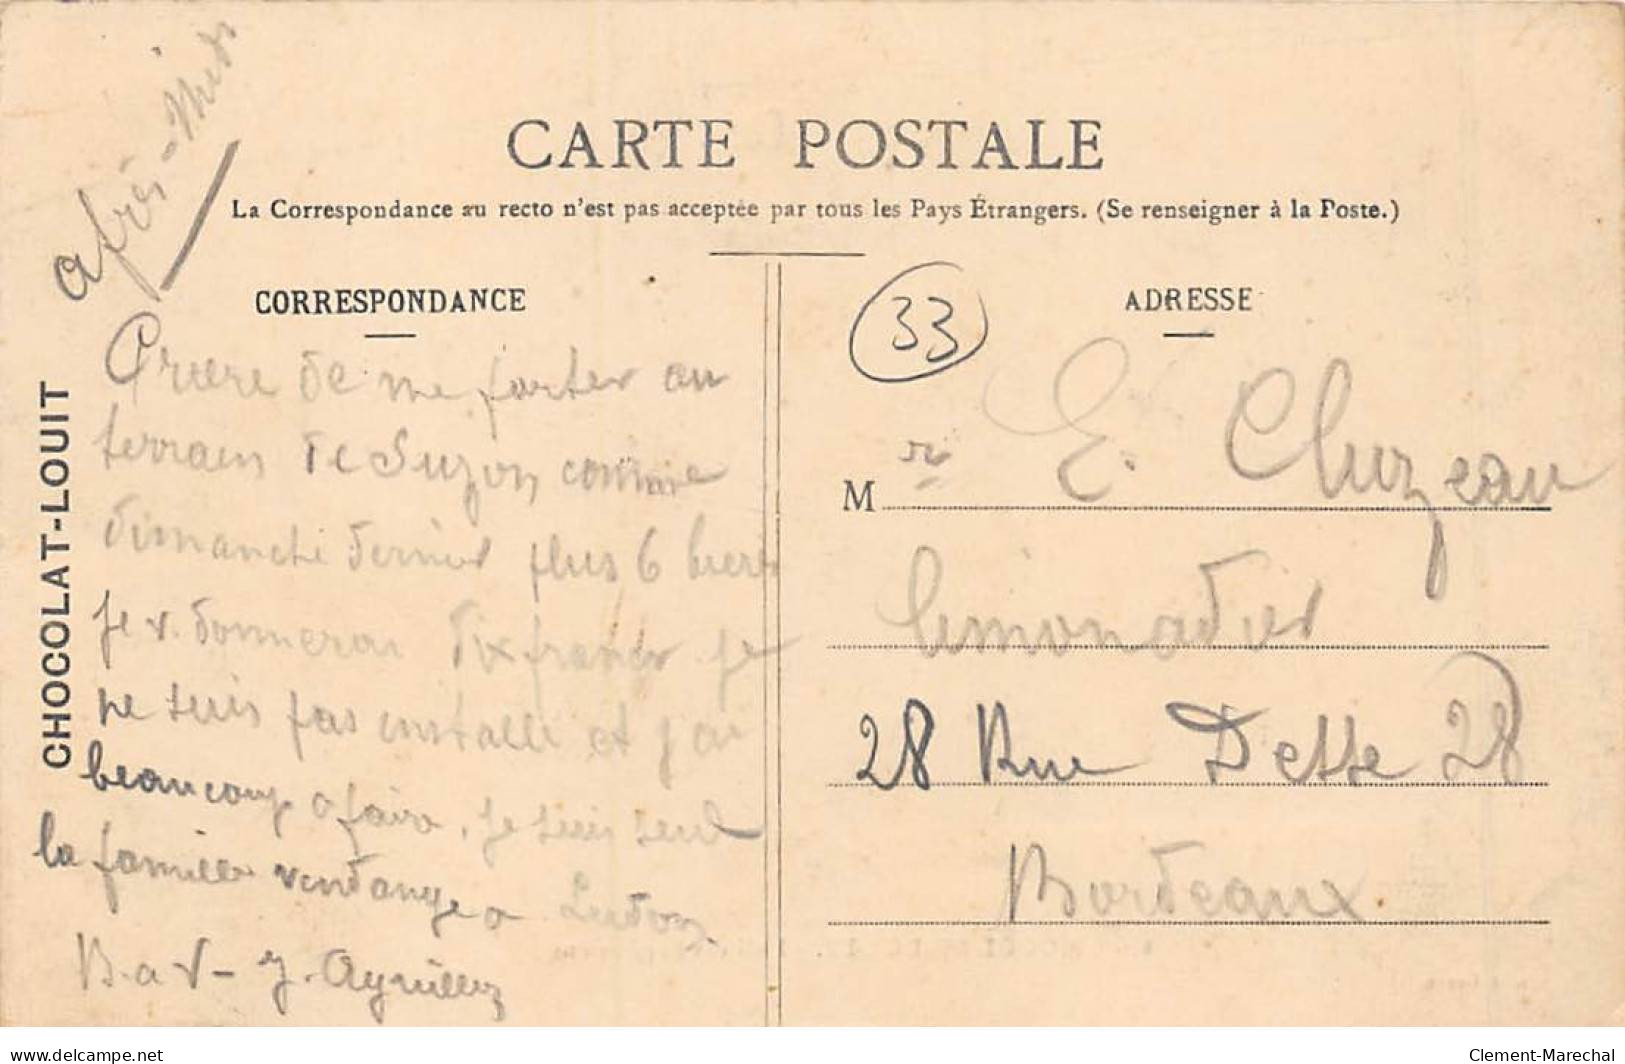 après-Midi
CARTE POSTALE
La Correspondance au recto n'est pas acceptée par tous les Pays Étrangers. (Se renseigner à la Poste.)
CORRESPONDANCE
Prière de me porter au
terrain de Suzon comme
dimanche dernier plus 6 bieres
Je v. donnerai dix francs Je
ne suis pas installé et j'ai
beaucoup a faire, je suis seul
la famille vendange a Ludon
B. a V - J.
CHOCOLAT-LOUIT
33
ADRESSE
M r E. Cluzeau
limonadier
28 Rue Dette 28
Bordeaux
delcampe.net
Clement-Marechal